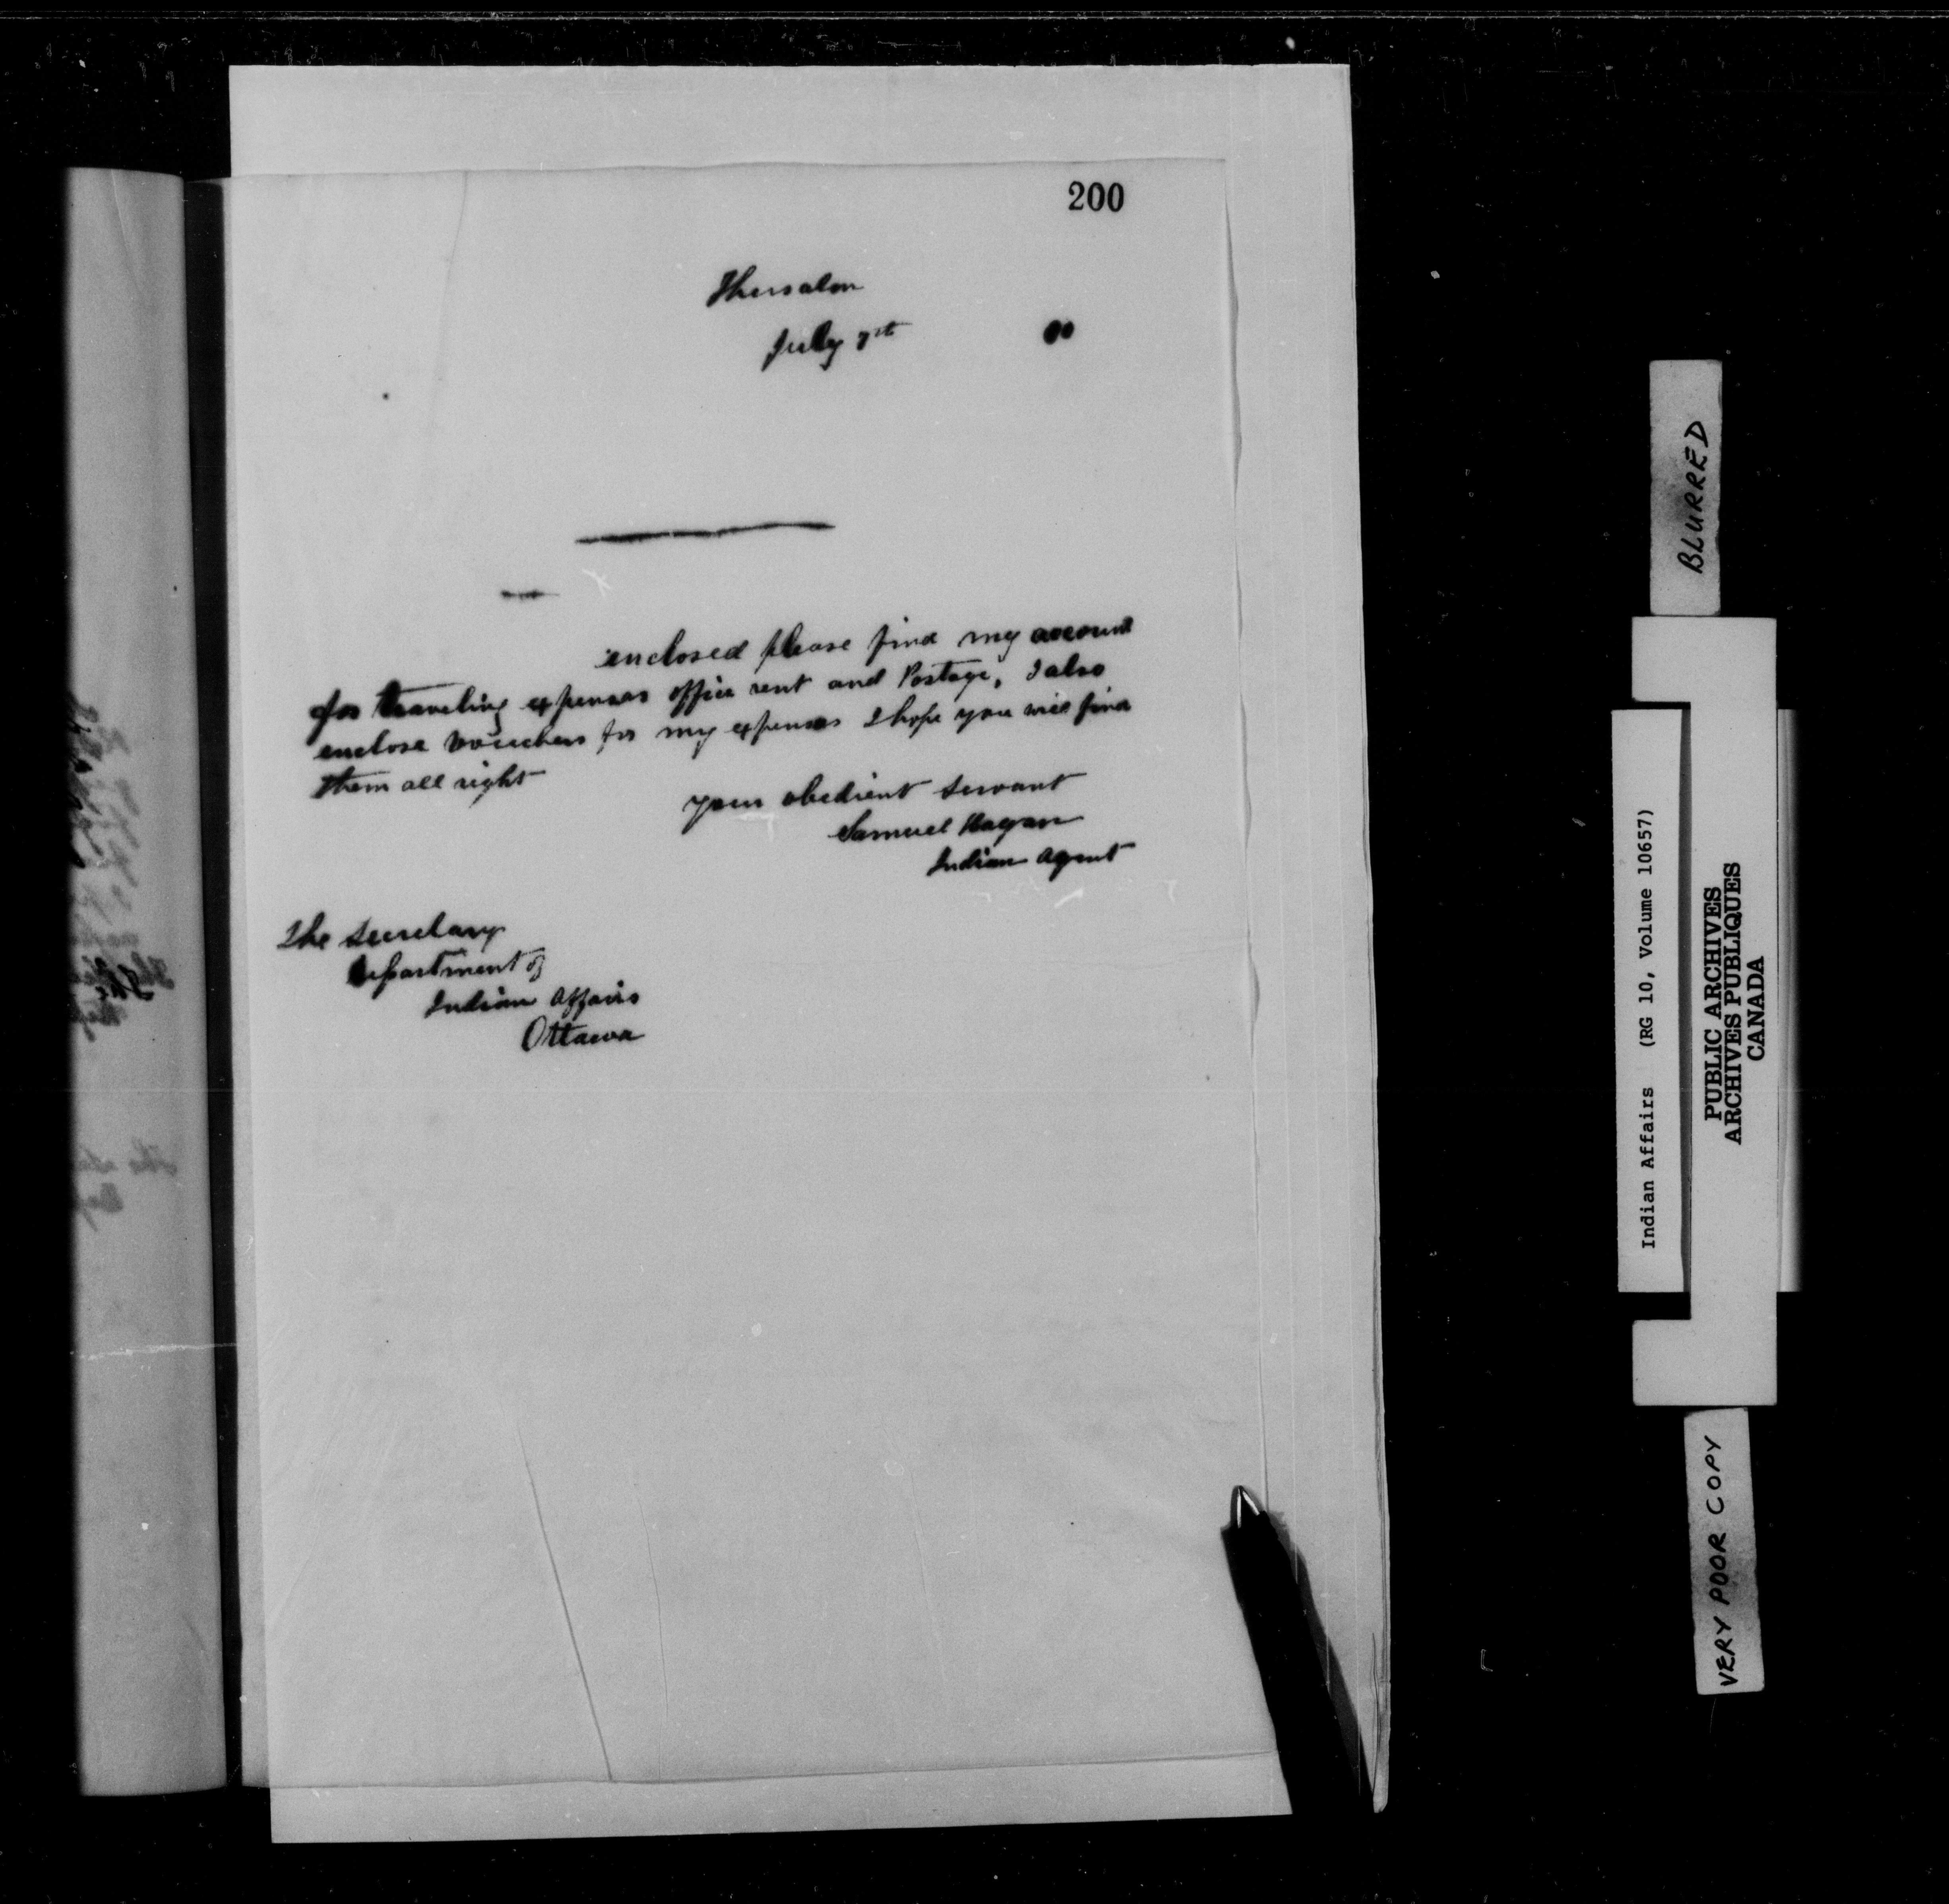 200
Thessalon
July 7th 00
enclosed please find my account
for traveling expenses office rent and Postage, I also
enclose vouchers for my expenses I hope you will find
them all right
your obedient servant
Samuel Hagan
Indian Agent
The Secretary
Department of
Indian Affairs
Ottawa
BLURRED
Indian Affairs (RG 10, Volume 10657)
PUBLIC ARCHIVES
ARCHIVES PUBLIQUES
CANADA
VERY POOR COPY